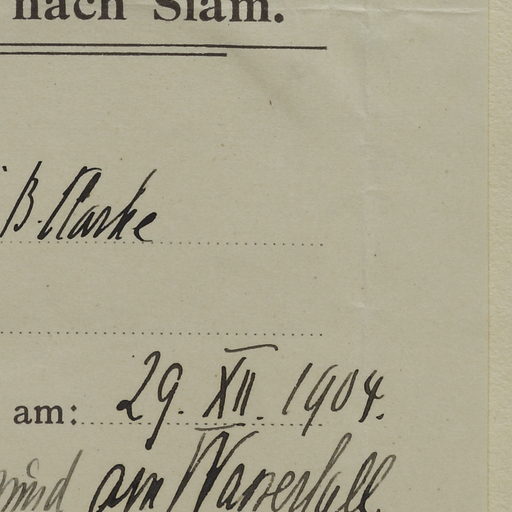 nach Siam.
B. Clarke
am: 29. XII. 1904.
am Wasserfall